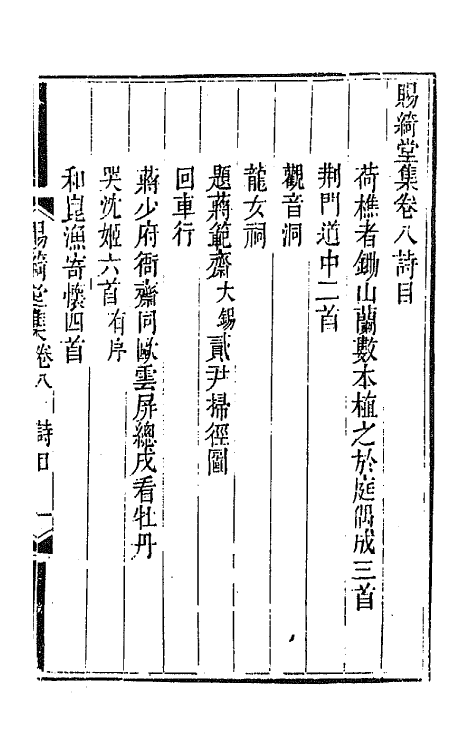 賜綺堂集卷八詩目
荷樵者鋤山蘭數本植之於庭偶成三首
荆門道中二首
觀音洞
龍女祠
題蔣範齋大錫貳尹掃徑圖
回車行
蔣少府衙齋同歐雲屏總戎看牡丹
哭沈姬六首有序
和崑漁寄懷四首
賜綺堂集卷八 詩目 一